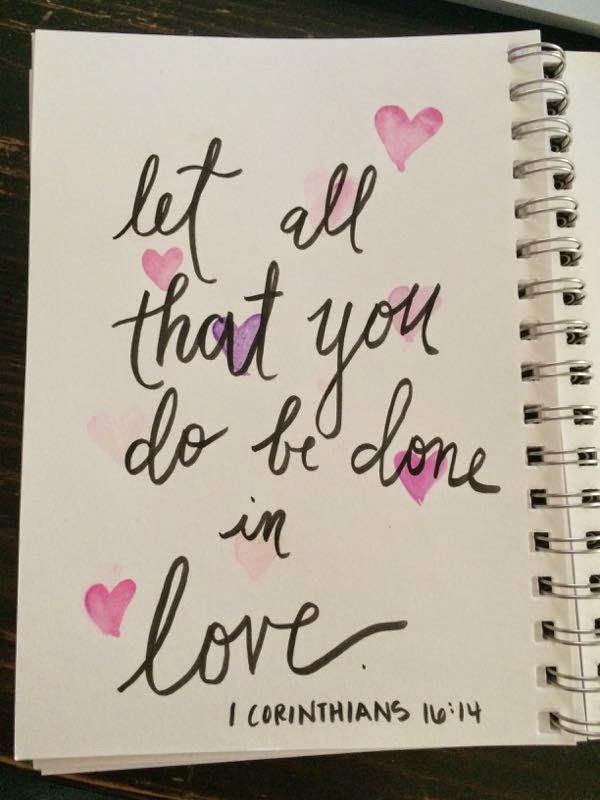 let all
that you
do be done
in
love.
1 CORINTHIANS 16:14